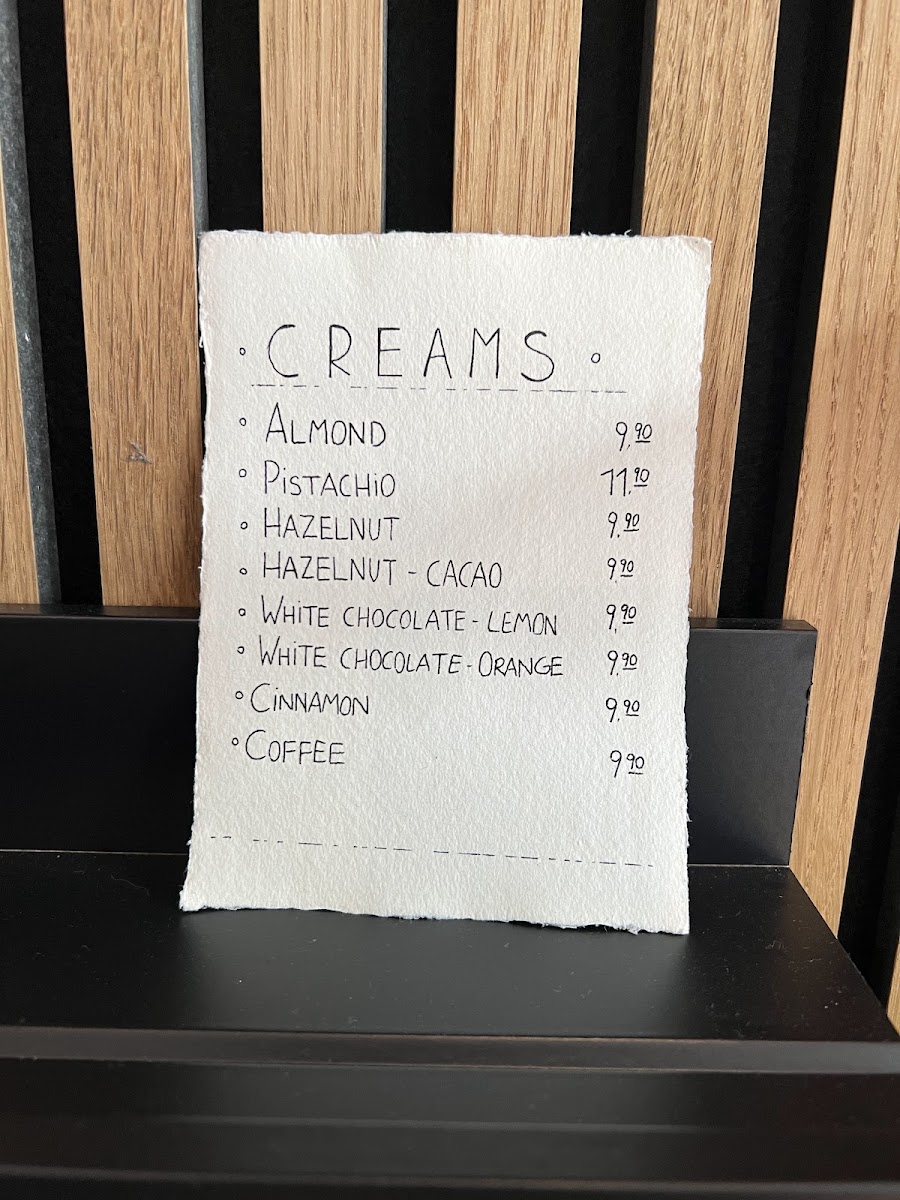 ° CREAMS °
° ALMOND 9,90
° PiSTACHiO 11,90
° HAZELNUT 9,90
° HAZELNUT - CACAO 9,90
° WHiTE CHOCOLATE - LEMON 9,90
° WHiTE CHOCOLATE - ORANGE 9,90
° CiNNAMON 9,90
° COFFEE 9 90